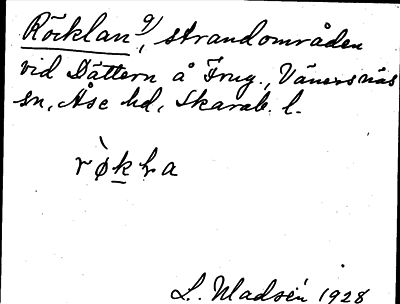 Röcklan g), strandområden
vid Dättern å Frug., Vänersnäs
sn, Åse hd, Skarab. l.
L. Madsén 1928